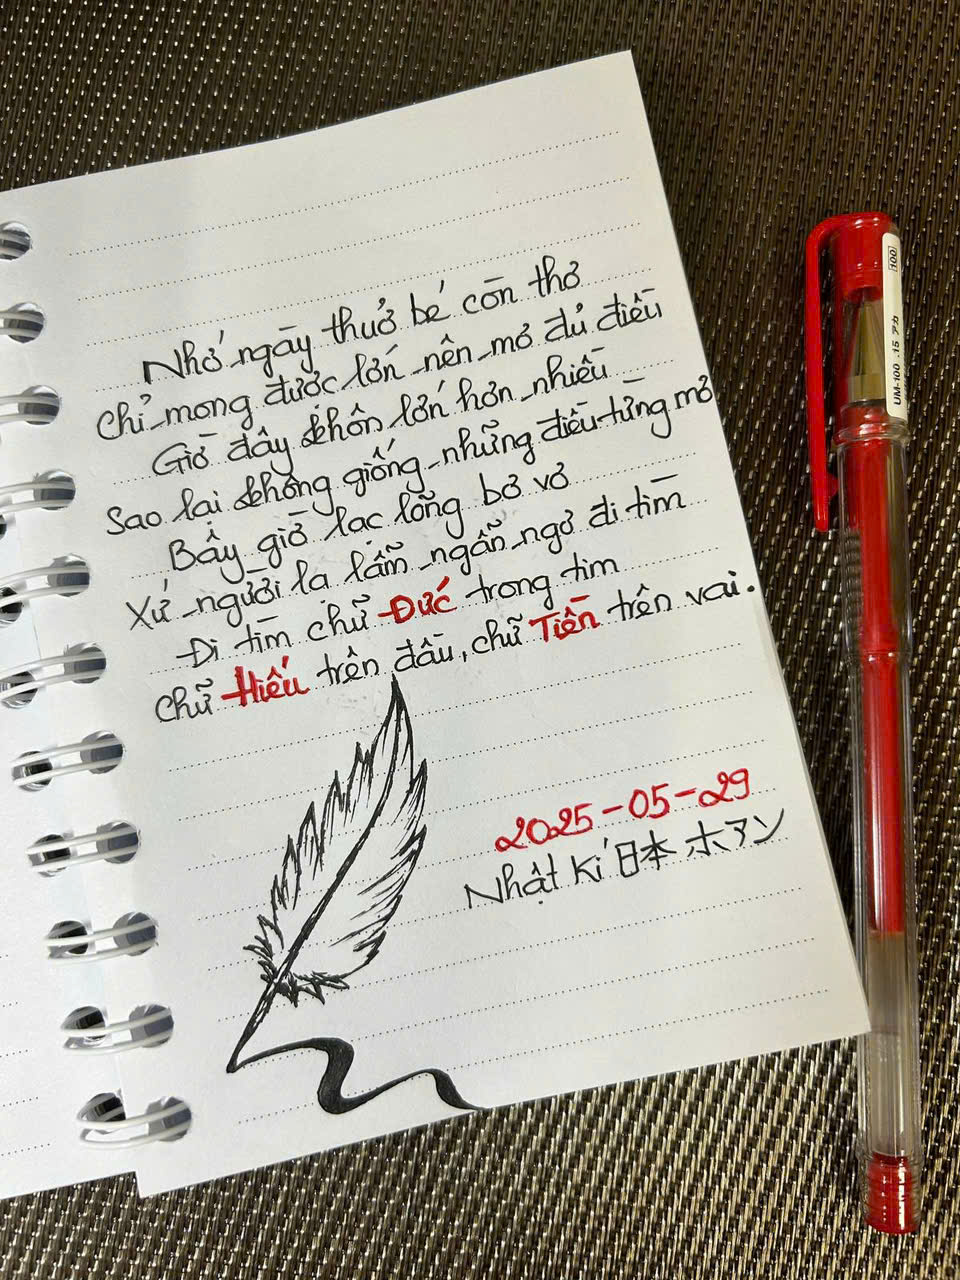 Nhớ ngày thuở bé còn thơ
Chỉ mong được lớn nên mơ đủ điều
Giờ đây khôn lớn hơn nhiều
Sao lại không giống những điều từng mơ
Bây giờ lạc lõng bơ vơ
Xứ người lạ lẫm ngẩn ngơ đi tìm
Đi tìm chữ Đức trong tim
Chữ Hiếu trên đầu, chữ Tiền trên vai.
2025-05-29
Nhật kí 日本 ホアン
UM-100 .15 アカ
100